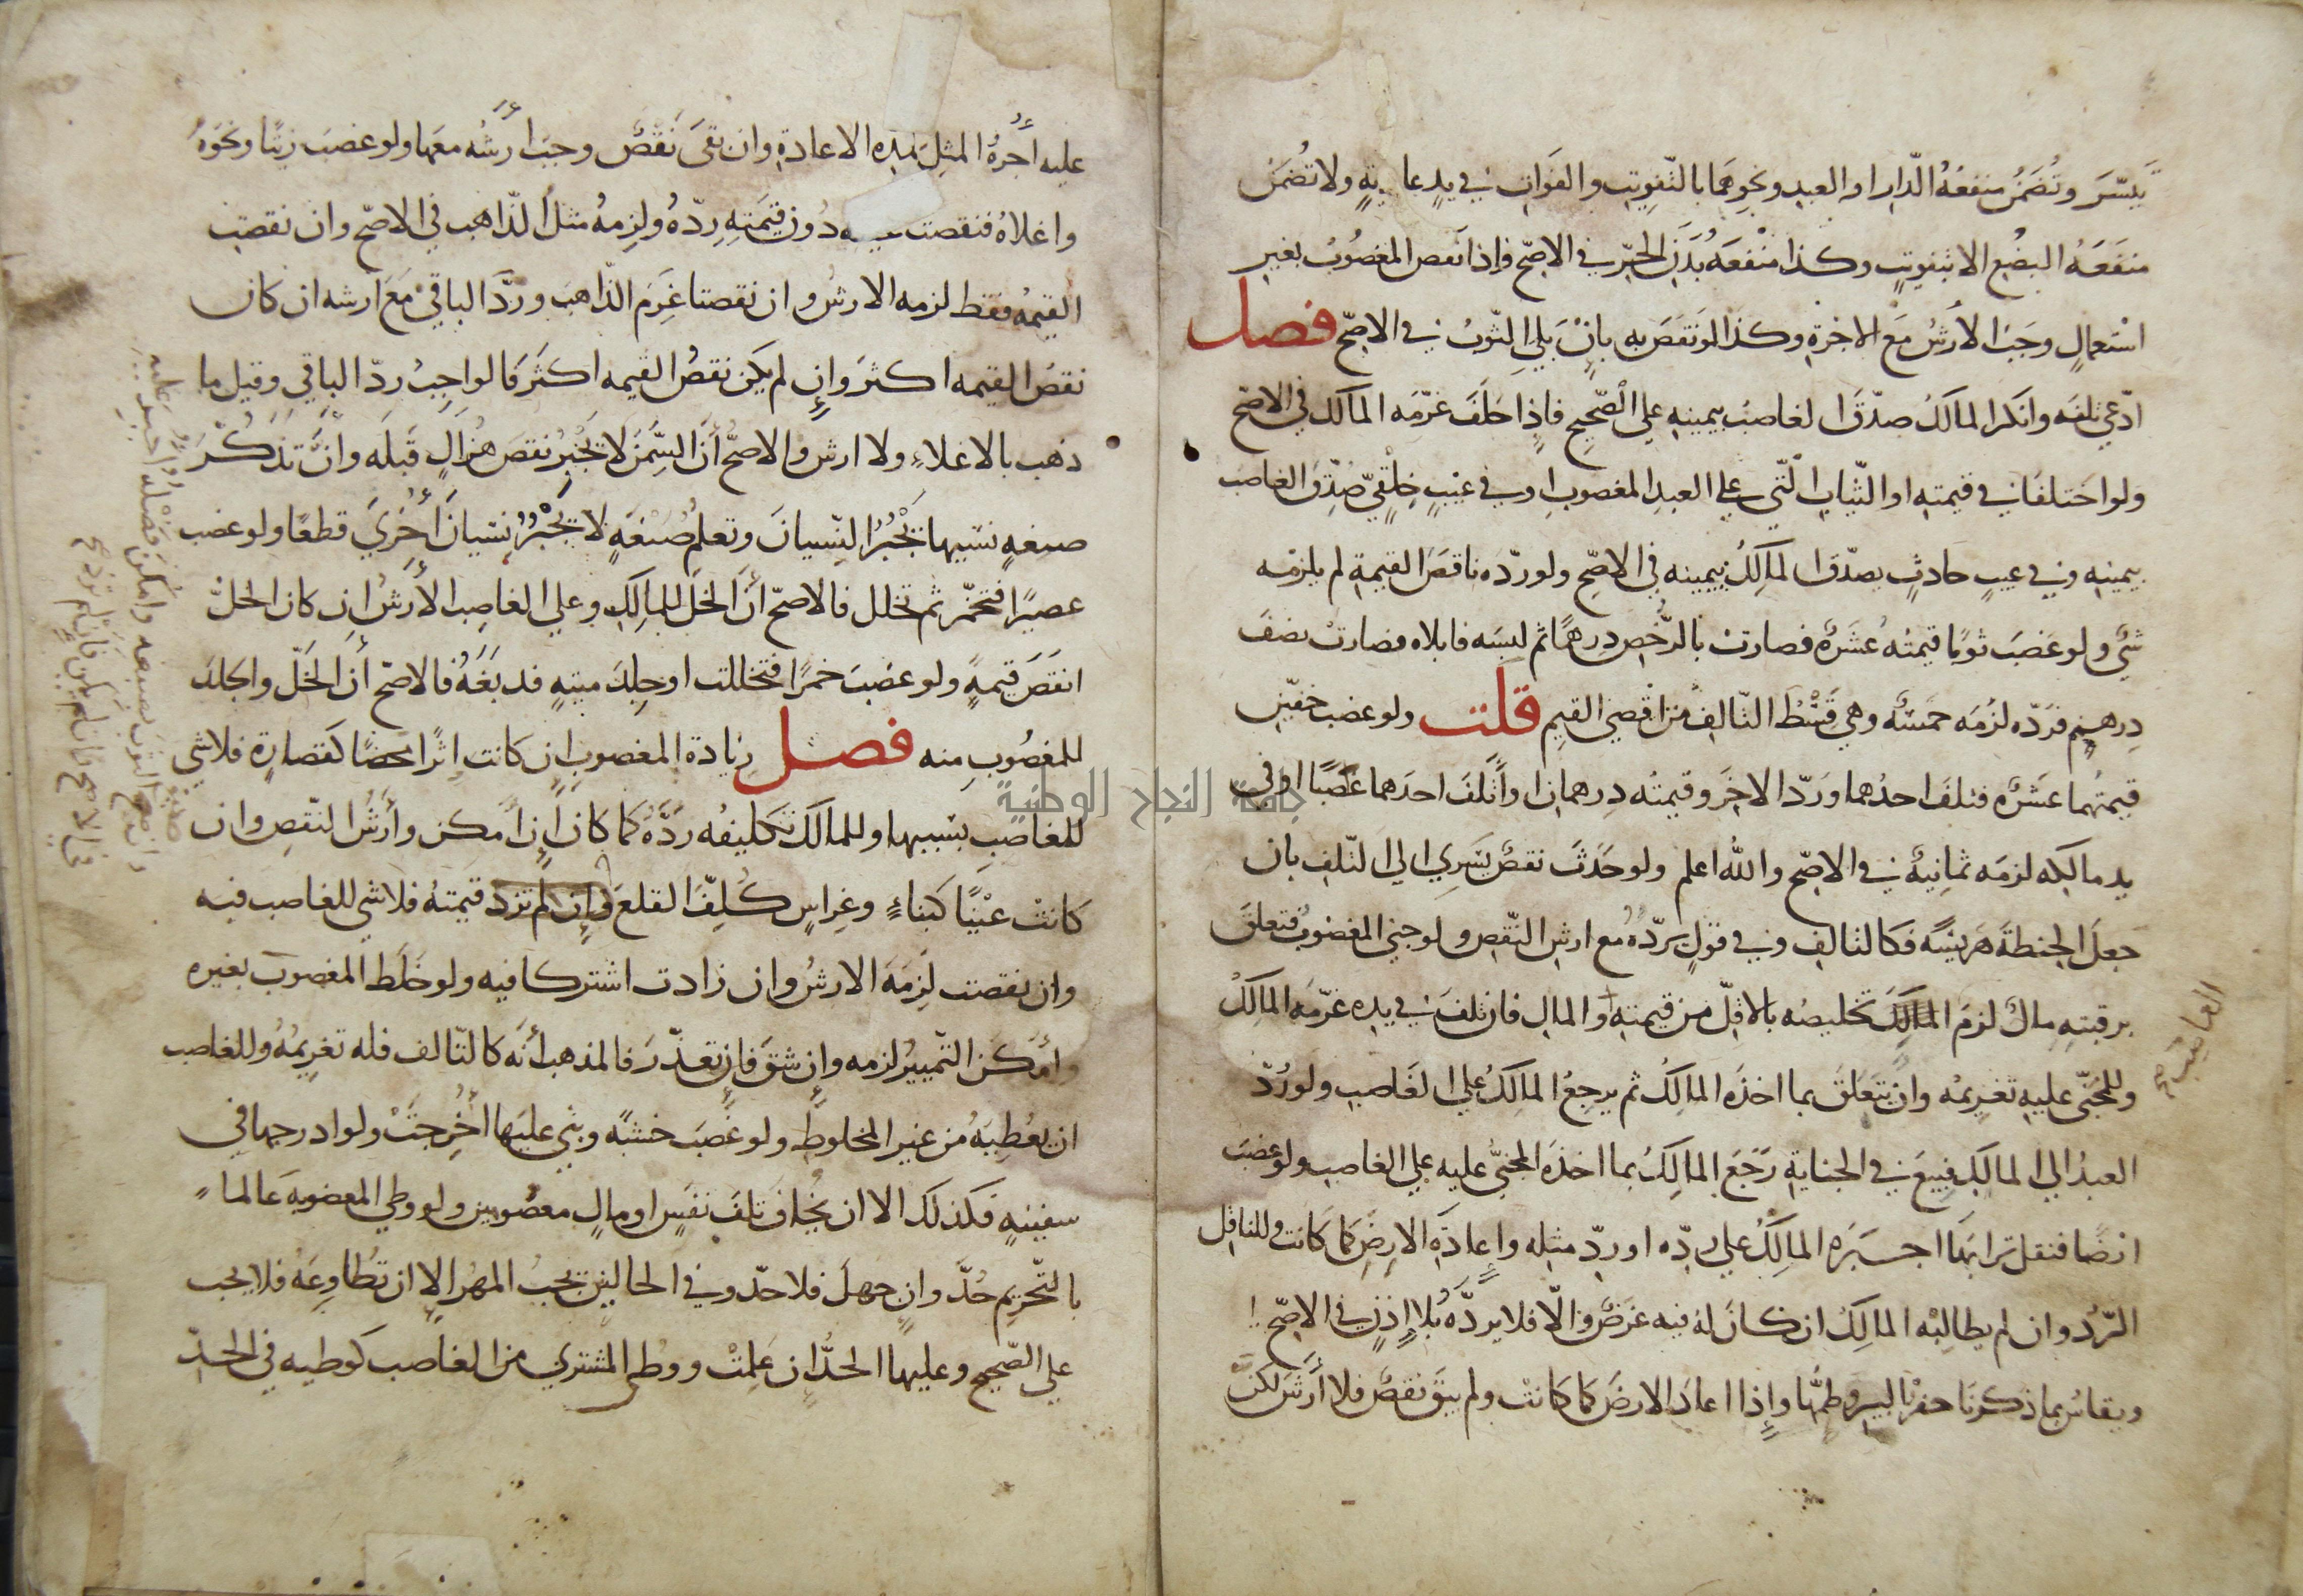 يتيسّر وتُضمَنُ منفعةُ الدّار والعبد ونحوهما بالتّفويت والفوات في يدٍ عاديةٍ ولا تُضمَن
منفعَةُ البضع الا بتفويتٍ وكذا منْفعَةُ بَدَنِ الحرّ في الاصحّ وإذا نَقص المغصُوبُ بغير
اسْتعمالٍ وجَبَ الأرشُ مَعَ الاجرة وكذا لو نَقَصَ به بانْ بَلِي الثّوبُ في الاصحّ فصل
ادّعي تلفَه وانكر المالكُ صدّقَ الغاصبُ بيمينه علي الصّحيح فاذا حَلَفَ غرّمَه المالك في الاصح
ولو اختلفا في قيمته او الثّياب الّتي علي العبد المغصوب او في عيْبٍ خِلْقيّ صُدّق الغاصب
بيمينه وفي عيبٍ حادثٍ يصدّق المالِكُ بيمينه في الاصحّ ولو ردّه ناقصَ القيمة لم يلزمْه
شيٌ ولو غصَبَ ثوبًا قيمتُه عشَرةٌ فصارت بالرُّخص درهمًا ثم لبسَه فابلاه فصارتْ نصفَ
دِرهمٍ فردّه لزمَه خمسَةٌ وهي قسْطُ التّالف من اقصي القيم قلت ولو غصب خفّين
قيمتُهما عَشَرة فتلفَ احدُهما ورَدّ الاخَرَ وقيمتُه دِرهمان او اتْلفَ احدَهما غصْبًا او في
يد مالكه لزمَه ثمانيةٌ في الاصحّ والله اعلم ولو حَدَثَ نقصٌ يَسْرِي الي التّلف بان
جعلَ الحنطةَ هريسَةً فكالتالف وفي قوْلٍ يردّهُ مع ارش النّقص ولو جني المغصُوبُ فتعلقَ
برقبته مالٌ لزمَ تخليصُه بالاقلّ من قيمته والمال فان تلفَ في يده غرّمَه المالكُ
وللمجْنيّ عليه تغريمُه وانْ يتعلّقَ بما اخذَه المالِكُ ثم يرجعُ المالِكُ علي الغاصب ولو رُدّ
العبدُ الي المالك فبيعَ في الجناية رَجَعَ المالِكُ بما اخذَه المجْنيُّ عليه علي الغاصب ولو غصبَ
ارضًا فنقل ترابَها اجبَرَه المالِكُ علي ردّه او ردّ مثلِه واعادَةِ الارض كما كانت وللناقل
الرّدُ وان لم يطالِبْه المالِكُ ان كانَ لهُ فيه غرَضٌ والّا فلا يردّهُ بلا إذنٍ في الاصحّ
ويقاسُ بما ذكرنَا حفرُ البير وطمُّها واذا اعادَ الارضَ كما كانتْ ولم يبقَ نقصٌ فلا أَرْشَ لكنْ
الغاصب صح
عليه أُجرةُ المثل لمدة الاعادة وان بقىَ نَقْصٌ وجبَ أرشُه معَها ولو غصبَ زيتًا ونحوَهُ
واغلاهُ فنقصت دُون قيمَتهِ ردّهُ ولزمهُ مثلُ الذّاهب في الاصحّ وان نقصت
القيمةُ فقط لزمه الارشُ وان نقصتا غَرِمَ الذّاهبَ وردَّ الباقيَ مَعَ ارشه ان كان
نقصُ القيمه اكثرَ وان لم يكن نقصُ القيمه اكثَرَ فالواجبُ ردّ الباقي وقيل ما
ذهب بالاغلاءِ ولا ارش والاصحُّ أنّ السِّمَنَ لا يجْبُرُ نقصَ هُزالٍ قَبلَه وأنَّ تذَكُّرَ
صنعةٍ نسيها يجْبُرُ النِّسيانَ وتعلّمُ صَنْعَةٍ لا يجْبُرُ نسيانَ أُخْرَي قطعًا ولو غصب
عصيرًا فتخمّر ثم تخلل فالاصحّ أنّ الخَلَّ للمالِكِ وعلي الغاصِب الأَرشُ ان كان الخلّ
انقَصَ قيمةً ولو غصَبَ خمرًا فتخللت او جلدَ ميتةٍ فدبغَهُ فالاصحّ أنّ الخَلّ والجلدَ
للمغصُوبِ منه فصل زيادة المغصوب إن كانت اثرًا محضًا كقصارةٍ فلا شي
للغاصب بسببها وللمالك تكليفُه ردَّهُ كما كان إن أمكن وأرْشُ النّقصِ وان
كانتْ عيْنًا كبناءٍ وغِراسٍ كُلِّفَ القلعَ وان لم تزد قيمتهُ فلا شي للغاصب فيه
وان نقصت لَزِمَهُ الارشُ وان زادت اشتركا فيه ولو خَلَط المغصوبَ بغيره
وأمكنَ التّمييزُ لزمه وإن شقَّ فإن تعذّرَ فالمذهب أنّه كالتّالف فله تغريمُهُ وللغاصب
ان يُعْطيَهُ من غير المخلوطِ ولو غصَبَ خشبَةً وبَنَي عليْها أُخْرجتْ ولو ادرجها في
سفينةٍ فكذلك الا ان يُخافَ تلفُ نفسٍ او مالٍ معصُومين ولو وطي المغصوبةَ عالما
بالتّحريم حُدَّ وإن جهلَ فلا حدّ وفي الحالين يجبُ المهرُ إلا ان تُطاوِعَهُ فلا يجب
علي الصّحيح وعليها الحدُّ إن عَلمتْ ووطي المشتري من الغاصب كوطيه في الحدّ
وان صبغ الثوبَ بصبغه وامكن فصلُه اجبر عليه
في الاصح وان لم يمكن فان لم تزد صح
جامعة النجاح الوطنية